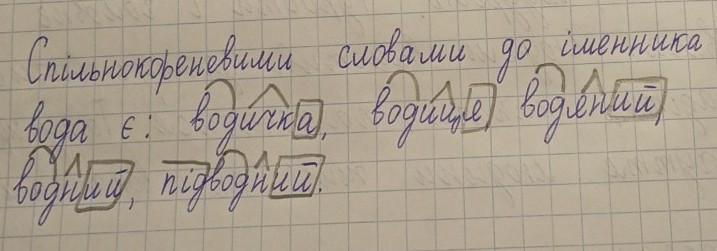 Спільнокореневими словами до іменника
вода є: водичка, водиця, водяний,
водний, підводний.